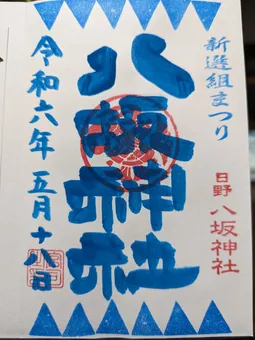 新選組まつり
日野 八坂神社
八坂神社
令和六年五月十八日